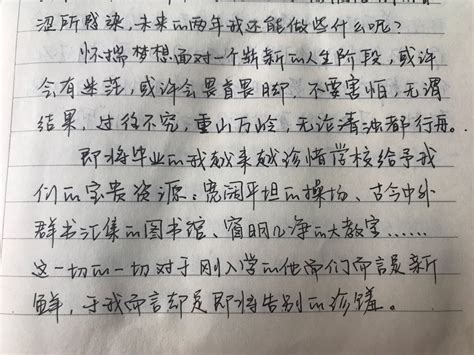 涩所感染,未来的两年我还能做些什么呢?
怀揣梦想面对一个崭新的人生阶段,或许
会有迷茫,或许会畏首畏脚,不要害怕,无谓
结果,过往不究,重山万岭,无论清浊都行再。
即将毕业的我越来越珍惜学校给予我
们的宝贵资源:宽阔平坦的操场、古今中外
群书汇集的图书馆、窗明几净的大教室……
这一切的一切对于刚入学的他们而言是新
鲜,于我而言却是即将告别的珍馐。